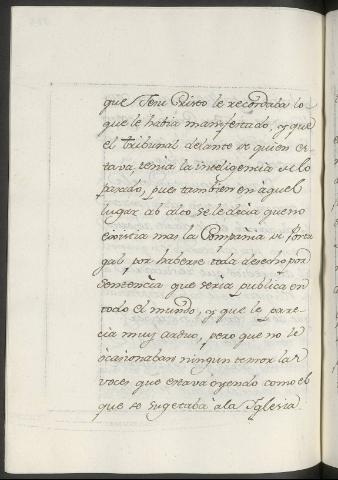 que Jesu Cristo le recordaba lo
que le habia manifestado, y que
el tribunal delante de quien es-
tava, tenia la inteligencia de lo
pasado, pues tambien en aquel
lugar ab alto se le decia que no
existia mas la Compañia de Portu
gal por haberse toda desecho por
sentencia que seria publica en
todo el mundo, y que le pare-
cia muy arduo, pero que no le
ocasionaban ningun temor las
voces que estava oyendo como el
que se sugetaba a la Iglesia.